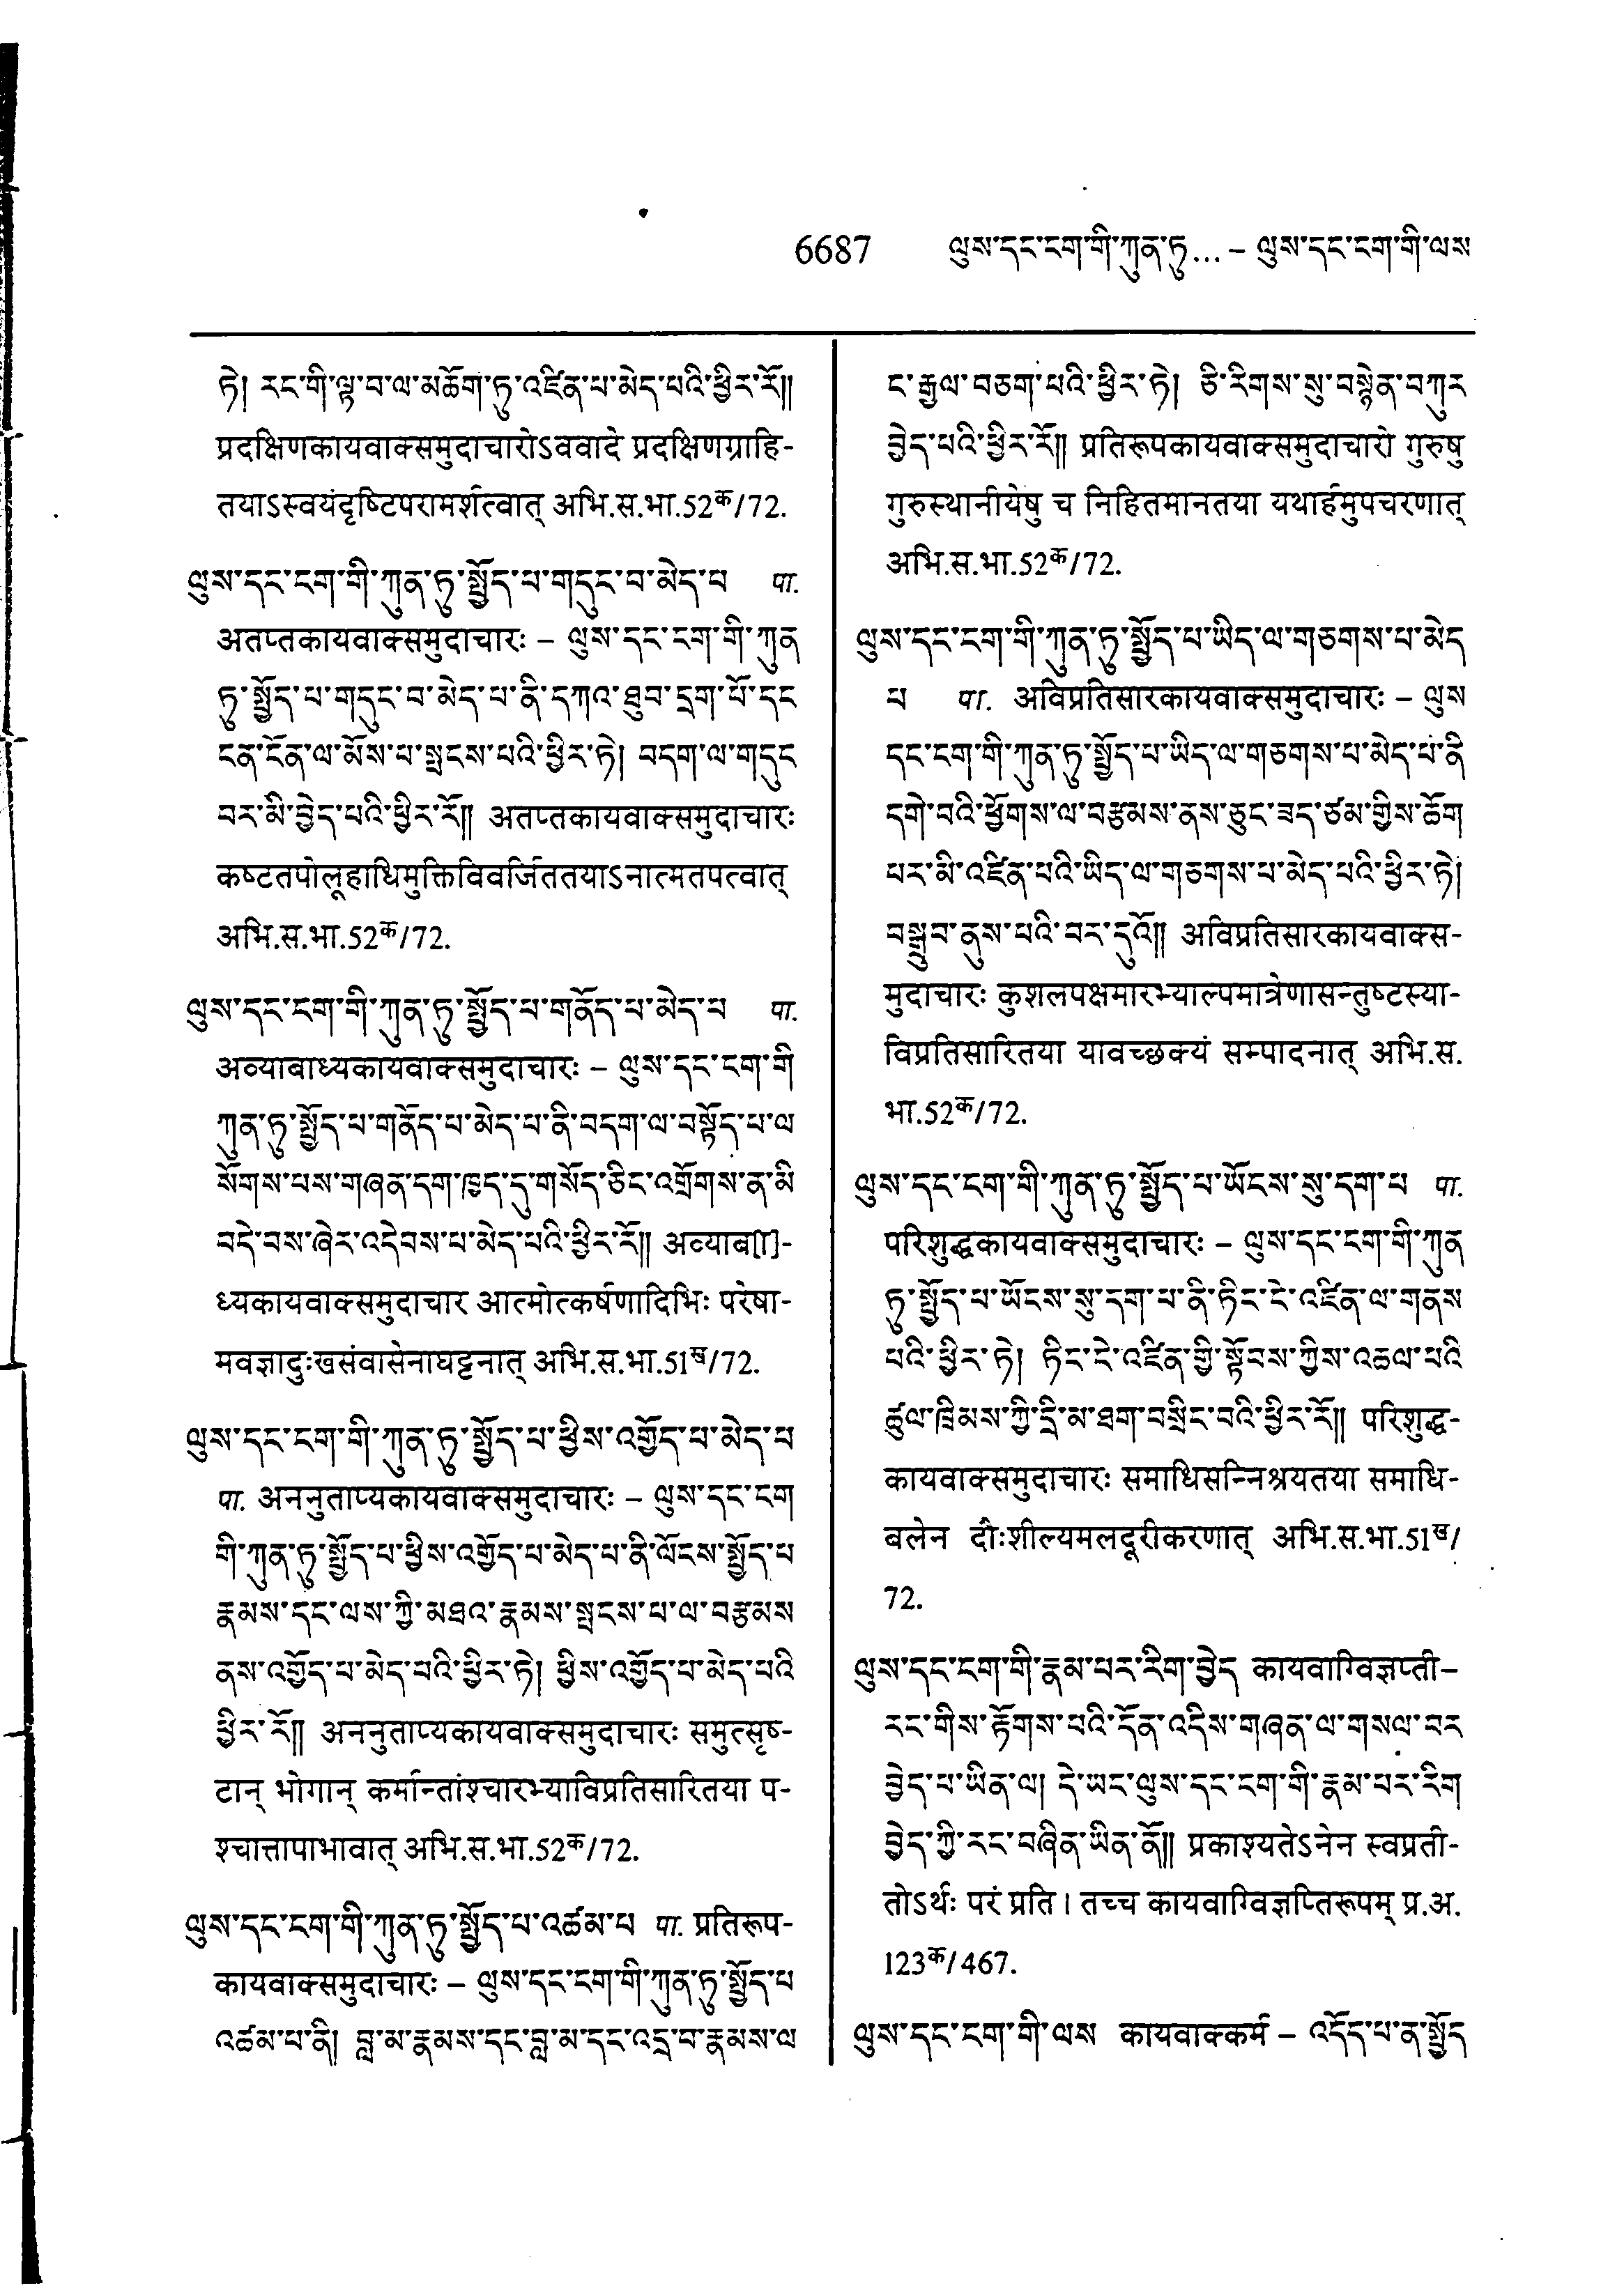 6687 ལུས་དང་ངག་གི་ཀུན་ཏུ... – ལུས་དང་ངག་གི་ལས
ཏེ། རང་གི་ལྟ་བ་ལ་མཆོག་ཏུ་འཛིན་པ་མེད་པའི་ཕྱིར་རོ༎
प्रदक्षिणकायवाक्समुदाचारोऽववादे प्रदक्षिणग्राहि-
तयाऽस्वयंदृष्टिपरामर्शत्वात् अभि.स.भा.52क/72.
ལུས་དང་ངག་གི་ཀུན་ཏུ་སྤྱོད་པ་གདུང་བ་མེད་པ पा.
अतप्तकायवाक्समुदाचारः – ལུས་དང་ངག་གི་ཀུན
ཏུ་སྤྱོད་པ་གདུང་བ་མེད་པ་ནི་དཀའ་ཐུབ་དྲག་པོ་དང
ངན་ངོན་ལ་མོས་པ་སྤངས་པའི་ཕྱིར་ཏེ། བདག་ལ་གདུང
བར་མི་བྱེད་པའི་ཕྱིར་རོ༎ अतप्तकायवाक्समुदाचारः
कष्टतपोलूहाधिमुक्तिविवर्जिततयाऽनात्मतपत्वात्
अभि.स.भा.52क/72.
ལུས་དང་ངག་གི་ཀུན་ཏུ་སྤྱོད་པ་གནོད་པ་མེད་པ पा.
अव्याबाध्यकायवाक्समुदाचारः – ལུས་དང་ངག་གི
ཀུན་ཏུ་སྤྱོད་པ་གནོད་པ་མེད་པ་ནི་བདག་ལ་བསྟོད་པ་ལ
སོགས་པས་གཞན་དག་ཁྱད་དུ་གསོད་ཅིང་འགྲོགས་ན་མི
བདེ་བས་ཞེར་འདེབས་པ་མེད་པའི་ཕྱིར་རོ༎ अव्याब[ा]-
ध्यकायवाक्समुदाचार आत्मोत्कर्षणादिभिः परेषा-
मवज्ञादुःखसंवासेनाघट्टनात् अभि.स.भा.51ख/72.
ལུས་དང་ངག་གི་ཀུན་ཏུ་སྤྱོད་པ་ཕྱིས་འགྱོད་པ་མེད་པ
पा. अननुताप्यकायवाक्समुदाचारः – ལུས་དང་ངག
གི་ཀུན་ཏུ་སྤྱོད་པ་ཕྱིས་འགྱོད་པ་མེད་པ་ནི་ལོངས་སྤྱོད་པ
རྣམས་དང་ལས་ཀྱི་མཐའ་རྣམས་སྤངས་པ་ལ་བརྩམས
ནས་འགྱོད་པ་མེད་པའི་ཕྱིར་ཏེ། ཕྱིས་འགྱོད་པ་མེད་པའི
ཕྱིར་རོ༎ अननुताप्यकायवाक्समुदाचारः समुत्सृष्-
टान् भोगान् कर्मान्तांश्चारभ्याविप्रतिसारितया प-
श्चात्तापाभावात् अभि.स.भा.52क/72.
ལུས་དང་ངག་གི་ཀུན་ཏུ་སྤྱོད་པ་འཚམ་པ पा. प्रतिरूप-
कायवाक्समुदाचारः – ལུས་དང་ངག་གི་ཀུན་ཏུ་སྤྱོད་པ
འཚམ་པ་ནི། བླ་མ་རྣམས་དང་བླ་མ་དང་འདྲ་བ་རྣམས་ལ
ང་རྒྱལ་བཅག་པའི་ཕྱིར་ཏེ། ཅི་རིགས་སུ་བསྙེན་བཀུར
བྱེད་པའི་ཕྱིར་རོ༎ प्रतिरूपकायवाक्समुदाचारो गुरुषु
गुरुस्थानीयेषु च निहितमानतया यथार्हमुपचरणात्
अभि.स.भा.52क/72.
ལུས་དང་ངག་གི་ཀུན་ཏུ་སྤྱོད་པ་ཡིད་ལ་གཅགས་པ་མེད
པ पा. अविप्रतिसारकायवाक्समुदाचारः – ལུས
དང་ངག་གི་ཀུན་ཏུ་སྤྱོད་པ་ཡིད་ལ་གཅགས་པ་མེད་པ་ནི
དགེ་བའི་ཕྱོགས་ལ་བརྩམས་ནས་ཅུང་ཟད་ཙམ་གྱིས་ཆོག
པར་མི་འཛིན་པའི་ཡིད་ལ་གཅགས་པ་མེད་པའི་ཕྱིར་ཏེ།
བསྒྲུབ་ནུས་པའི་བར་དུའོ༎ अविप्रतिसारकायवाक्स-
मुदाचारः कुशलपक्षमारभ्याल्पमात्रेणासन्तुष्टस्या-
विप्रतिसारितया यावच्छक्यं सम्पादनात् अभि.स.
भा.52क/72.
ལུས་དང་ངག་གི་ཀུན་ཏུ་སྤྱོད་པ་ཡོངས་སུ་དག་པ पा.
परिशुद्धकायवाक्समुदाचारः – ལུས་དང་ངག་གི་ཀུན
ཏུ་སྤྱོད་པ་ཡོངས་སུ་དག་པ་ནི་ཏིང་ངེ་འཛིན་ལ་གནས
པའི་ཕྱིར་ཏེ། ཏིང་ངེ་འཛིན་གྱི་སྟོབས་ཀྱིས་འཆལ་པའི
ཚུལ་ཁྲིམས་ཀྱི་དྲི་མ་ཐག་བསྲིང་བའི་ཕྱིར་རོ༎ परिशुद्ध-
कायवाक्समुदाचारः समाधिसन्निश्रयतया समाधि-
बलेन दौःशील्यमलदूरीकरणात् अभि.स.भा.51ख/
72.
ལུས་དང་ངག་གི་རྣམ་པར་རིག་བྱེད कायवाग्विज्ञप्ती–
རང་གིས་རྟོགས་པའི་དོན་འདིས་གཞན་ལ་གསལ་བར
བྱེད་པ་ཡིན་ལ། དེ་ཡང་ལུས་དང་ངག་གི་རྣམ་པར་རིག
བྱེད་ཀྱི་རང་བཞིན་ཡིན་ནོ༎ प्रकाश्यतेऽनेन स्वप्रती-
तोऽर्थः परं प्रति । तच्च कायवाग्विज्ञप्तिरूपम् प्र.अ.
123क/467.
ལུས་དང་ངག་གི་ལས कायवाक्कर्म – འདོད་པ་ན་སྤྱོད